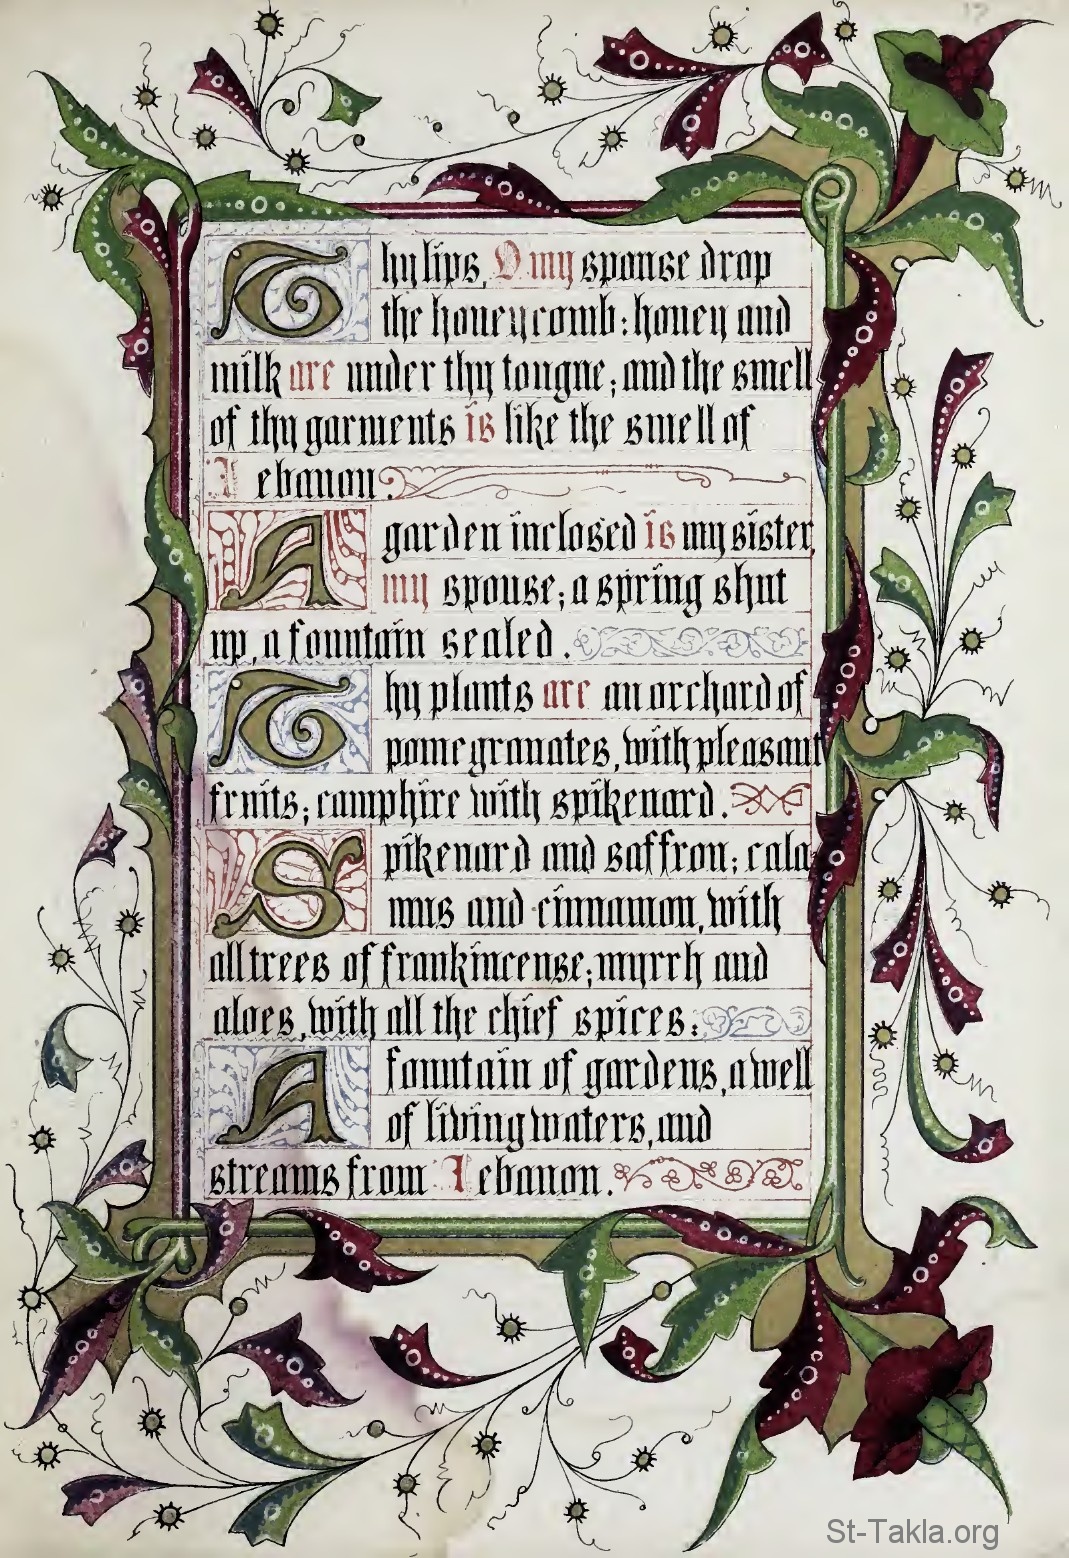 17
Thy lips, O my spouse drop
the honeycomb: honey and
milk are under thy tongue; and the smell
of thy garments is like the smell of
Lebanon.
A garden inclosed is my sister,
my spouse; a spring shut
up, a fountain sealed.
Thy plants are an orchard of
pomegranates, with pleasant
fruits; camphire with spikenard.
Spikenard and saffron; cala
mus and cinnamon, with
all trees of frankincense; myrrh and
aloes, with all the chief spices:
A fountain of gardens, a well
of living waters, and
streams from Lebanon.
St-Takla.org